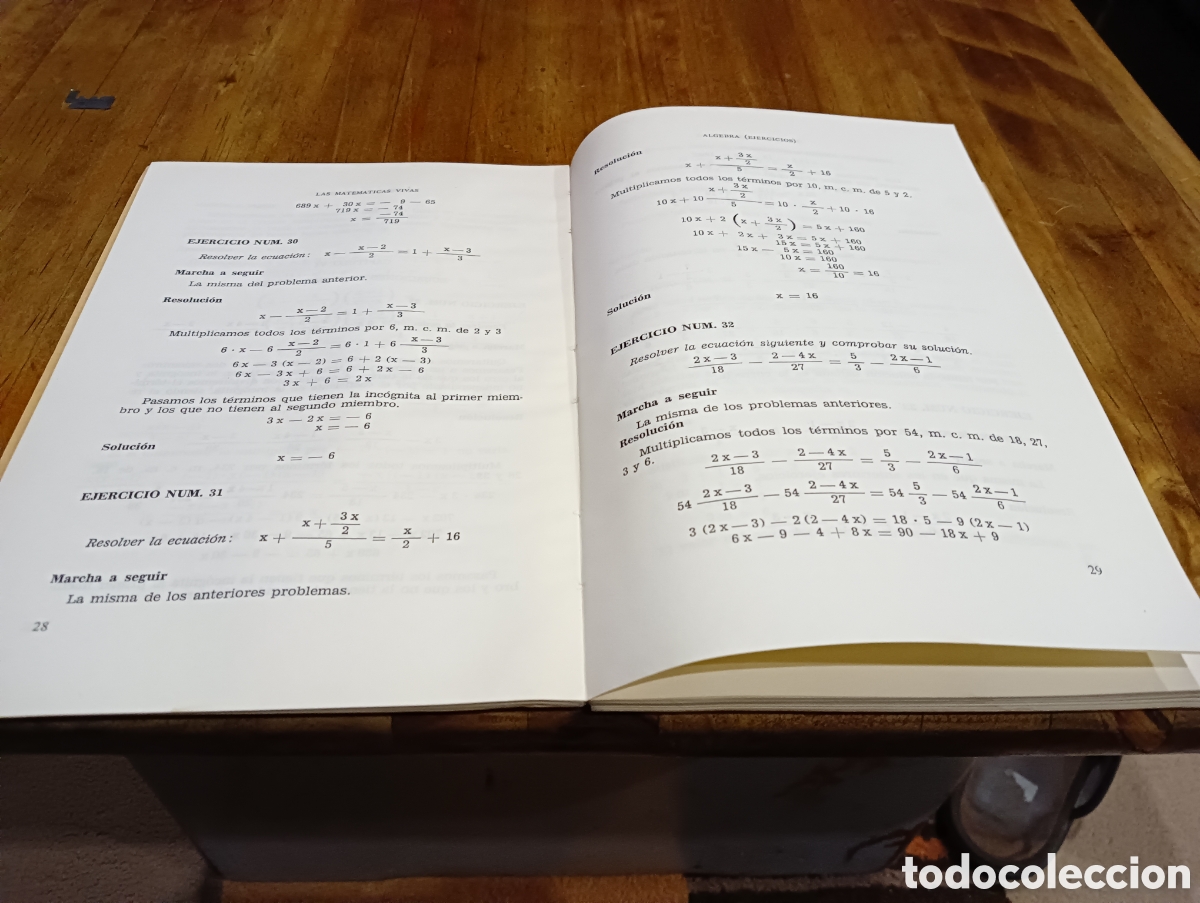 LAS MATEMATICAS VIVAS
689 x + 30 x = — 9 — 65
719 x = — 74
x = —74/719
EJERCICIO NUM. 30
Resolver la ecuación: x — (x — 2)/2 = 1 + (x — 3)/3
Marcha a seguir
La misma del problema anterior.
Resolución
x — (x — 2)/2 = 1 + (x — 3)/3
Multiplicamos todos los términos por 6, m. c. m. de 2 y 3
6 · x — 6 (x — 2)/2 = 6 · 1 + 6 (x — 3)/3
6 x — 3 (x — 2) = 6 + 2 (x — 3)
6 x — 3 x + 6 = 6 + 2 x — 6
3 x + 6 = 2 x
Pasamos los términos que tienen la incógnita al primer miem-
bro y los que no tienen al segundo miembro.
3 x — 2 x = — 6
x = — 6
Solución
x = — 6
EJERCICIO NUM. 31
Resolver la ecuación: x + (x + 3 x/2)/5 = x/2 + 16
Marcha a seguir
La misma de los anteriores problemas.
28
ALGEBRA (EJERCICIOS)
Resolución
x + (x + 3 x/2)/5 = x/2 + 16
Multiplicamos todos los términos por 10, m. c. m. de 5 y 2.
10 x + 10 (x + 3 x/2)/5 = 10 · x/2 + 10 · 16
10 x + 2 (x + 3 x/2) = 5 x + 160
10 x + 2 x + 3 x = 5 x + 160
15 x = 5 x + 160
15 x — 5 x = 160
10 x = 160
x = 160/10 = 16
Solución
x = 16
EJERCICIO NUM. 32
Resolver la ecuación siguiente y comprobar su solución.
(2 x — 3)/18 — (2 — 4 x)/27 = 5/3 — (2 x — 1)/6
Marcha a seguir
La misma de los problemas anteriores.
Resolución
Multiplicamos todos los términos por 54, m. c. m. de 18, 27,
3 y 6.
(2 x — 3)/18 — (2 — 4 x)/27 = 5/3 — (2 x — 1)/6
54 (2 x — 3)/18 — 54 (2 — 4 x)/27 = 54 5/3 — 54 (2 x — 1)/6
3 (2 x — 3) — 2 (2 — 4 x) = 18 · 5 — 9 (2 x — 1)
6 x — 9 — 4 + 8 x = 90 — 18 x + 9
29
todocoleccion